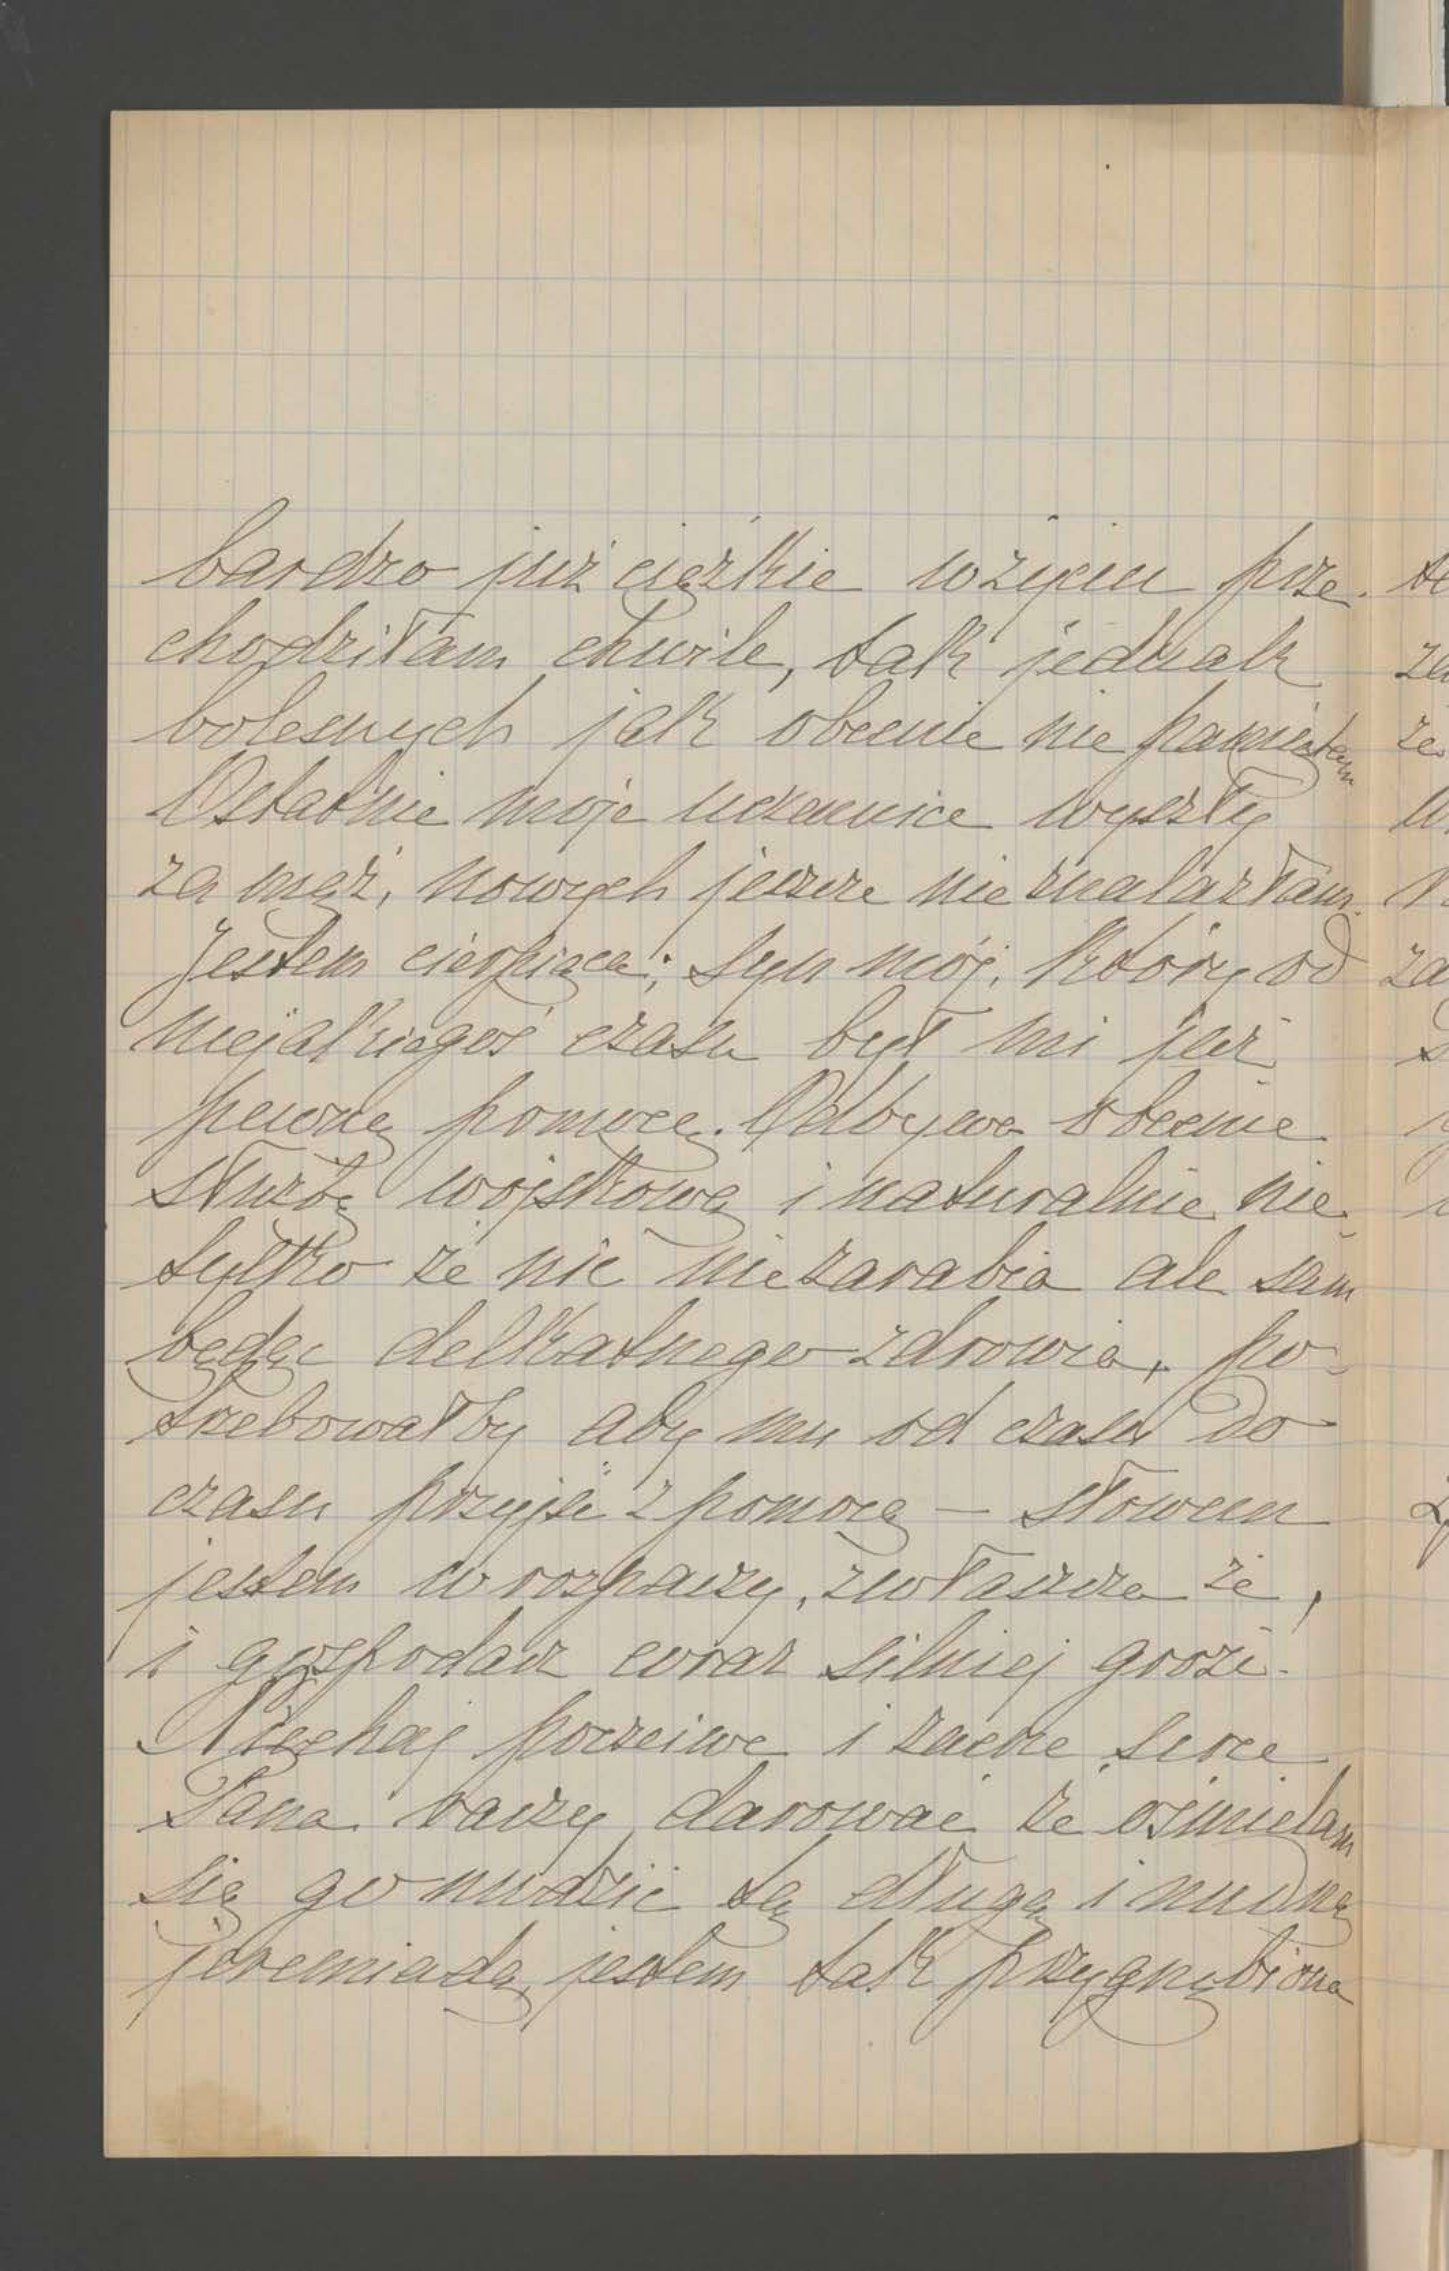 bardzo już ciężkie w życiu prze-
chodziłam chwile, tak jednak
bolesnych jak obecnie nie pamiętam
Ostatnie moje uczennice wyszły
za mąż, nowych jeszcze nie znalazłam.
Jestem cierpiąca; syn mój, który od
niejakiegoś czasu był mi już
pewną pomocą. Odbywa obecnie
służbę wojskową i naturalnie nie
tylko że nic nie zarabia ale sam
będąc delikatnego zdrowia, po-
trzebowałby aby mu od czasu do
czasu przyjść z pomocą – słowem
jestem w rozpaczy, zwłaszcza że,
i gospodarz coraz silniej grozi.
Niechaj poczciwe i zacne serce
Pana raczy darować że ośmielam
się go nudzić tą długą i nudną
jeremiadą, jestem tak przygnębiona